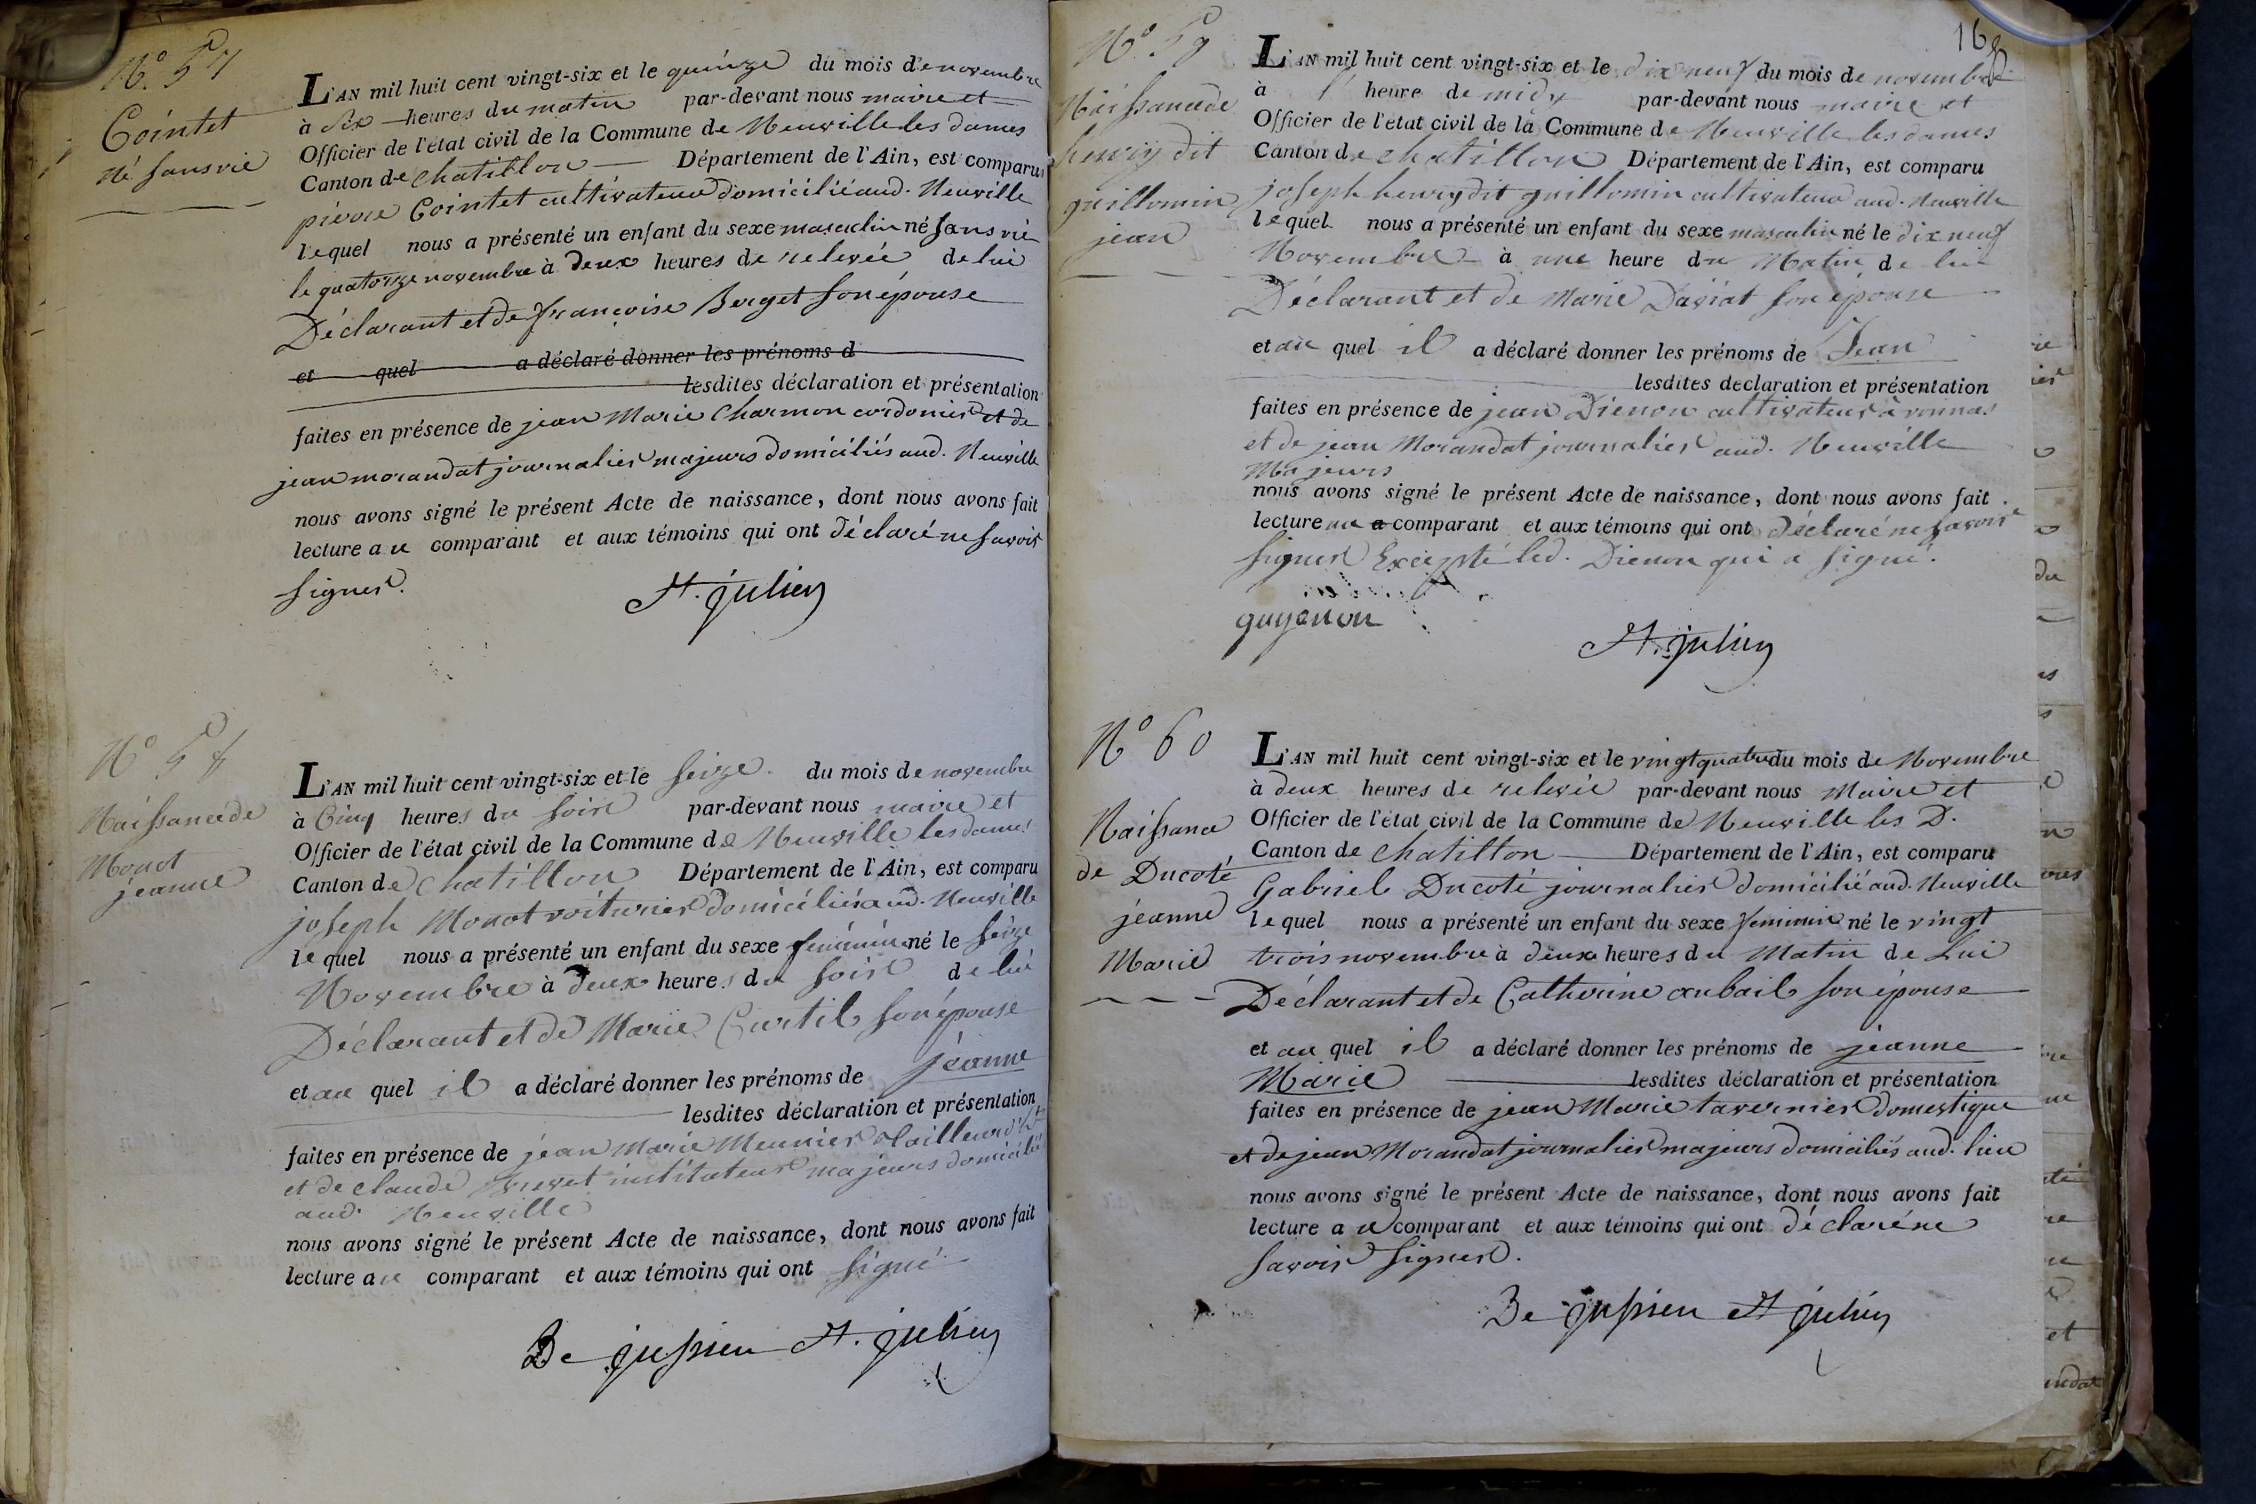 N.o 57
Cointet
né sans vie
L'AN mil huit cent vingt-six et le quinze du mois de novembre
à Six heures du matin par-devant nous maire et
Officier de l'état civil de la Commune de Neuville les dames
Canton de chatillon Département de l'Ain, est comparu
pierre Cointet cultivateur domicilié aud. Neuville
lequel nous a présenté un enfant du sexe masculin né sans vie
le quatorze novembre à deux heures de relevée de lui
Déclarant et de françoise Berget son épouse
et quel a déclaré donner les prénoms d
lesdites déclaration et présentation
faites en présence de jean Marie Charmon cordonier et de
jean morandat journalier majeurs domiciliés aud. Neuville
nous avons signé le présent Acte de naissance, dont nous avons fait
lecture au comparant et aux témoins qui ont déclaré ne savoir
signer.
St. julien
N.o 58
Naissance de
Monot
jeanne
L'AN mil huit cent vingt-six et le seize du mois de novembre
à Cinq heures du soir par-devant nous maire et
Officier de l'état civil de la Commune de Neuville les dames
Canton de chatillon Département de l'Ain, est comparu
joseph Monot voiturier domicilié aud. Neuville
lequel nous a présenté un enfant du sexe feminin né le seize
Novembre à deux heures du soir de lui
Déclarant et de Marie Curtil son épouse
et au quel il a déclaré donner les prénoms de jeanne
lesdites déclaration et présentation
faites en présence de jean Marie Meunier tailleur d'h.t
et de claude instituteur majeurs domiciliés
aud. Neuville
nous avons signé le présent Acte de naissance, dont nous avons fait
lecture au comparant et aux témoins qui ont signé
De jussieu St. julien
168
N.o 59
Naissance de
henry dit
guillomin
jean
L'AN mil huit cent vingt-six et le dix neuf du mois de novembre
à l' heure de midy par-devant nous maire et
Officier de l'état civil de la Commune de Neuville les dames
Canton de chatillon Département de l'Ain, est comparu
joseph henry dit guillomin cultivateur aud. Neuville
lequel nous a présenté un enfant du sexe masculin né le dix neuf
Novembre à une heure du Matin de lui
Déclarant et de Marie Daviat son épouse
et au quel il a déclaré donner les prénoms de Jean
lesdites déclaration et présentation
faites en présence de jean Dienon cultivateur à vonnas
et de jean Morandat journalier aud. Neuville
Majeurs
nous avons signé le présent Acte de naissance, dont nous avons fait
lecture au a comparant et aux témoins qui ont déclaré ne savoir
signer Excepté led. Dienon qui a signé.
guyenon
St. julien
N.o 60
Naissance
de Ducoté
jeanne
Marie
L'AN mil huit cent vingt-six et le vingt quatre du mois de Novembre
à deux heures de relevée par-devant nous Maire et
Officier de l'état civil de la Commune de Neuville les D.
Canton de chatillon Département de l'Ain, est comparu
Gabriel Ducoté journalier domicilié aud. Neuville
lequel nous a présenté un enfant du sexe feminin né le vingt
trois novembre à deux heures du Matin de Lui
Déclarant et de Catherine aubail son épouse
et au quel il a déclaré donner les prénoms de jeanne
Marie lesdites déclaration et présentation
faites en présence de jean Marie tavernier domestique
et de jean Morandat journalier majeurs domiciliés aud. lieu
nous avons signé le présent Acte de naissance, dont nous avons fait
lecture au comparant et aux témoins qui ont déclaré ne
savoir signer.
De jussieu St julien